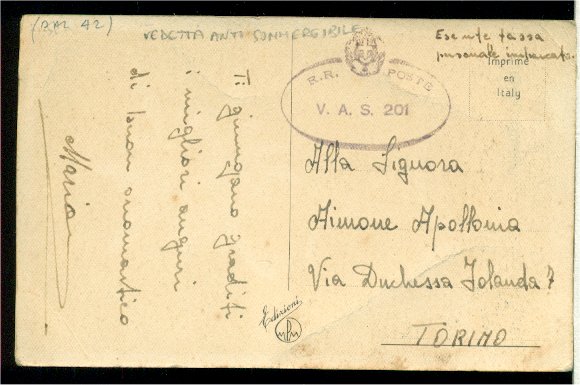 (BAZ 42)
VEDETTA ANTI SOMMERGIBILE
Esente tassa
personale imbarcato.
Imprimé
en
Italy
R.R. POSTE
V. A. S. 201
Ti giungano graditi
i migliori auguri
di buon onomastico
Mario
Alla Signora
Aimone Apollonia
Via Duchessa Jolanda 7
TORINO
Edizioni